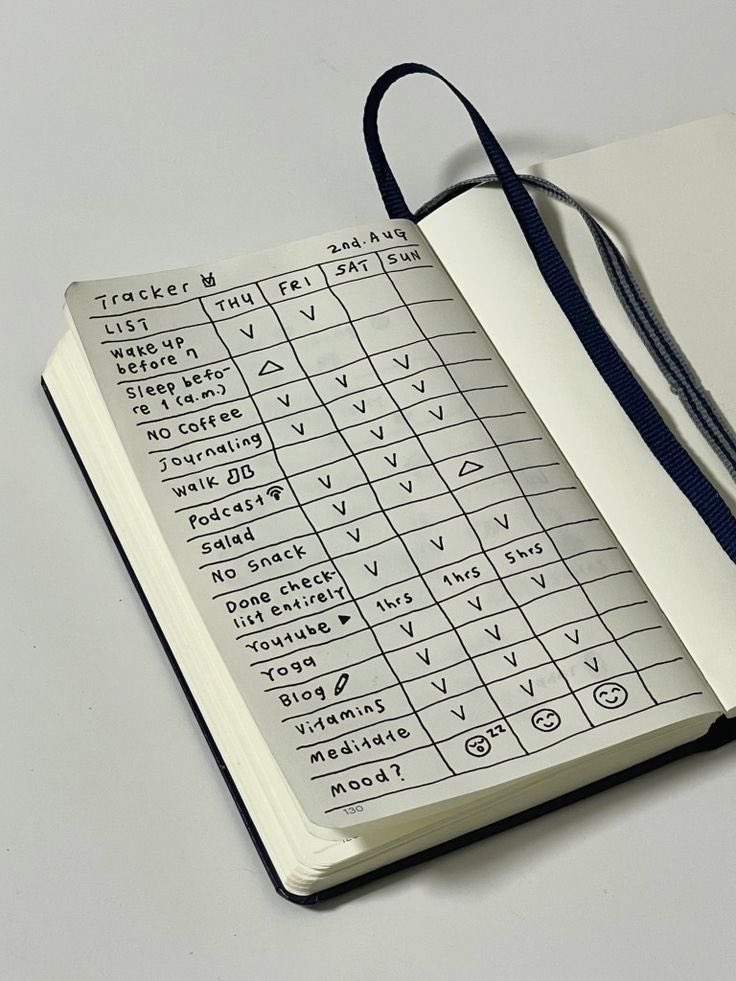 2nd. AUG
Tracker
LIST THU FRI SAT SUN
Wake up V V
before 7
Sleep befo- △
re 1 (a.m.)
NO Coffee V V V
Journaling V V V
Walk V V
Podcast V V
Salad V V △
NO Snack V
Done check- V V V
list entirely
Youtube ▶ 1hrs 1hrs 5hrs
Yoga V V V
Blog V V
Vitamins V V V
Meditate V V V
Mood? zz
130